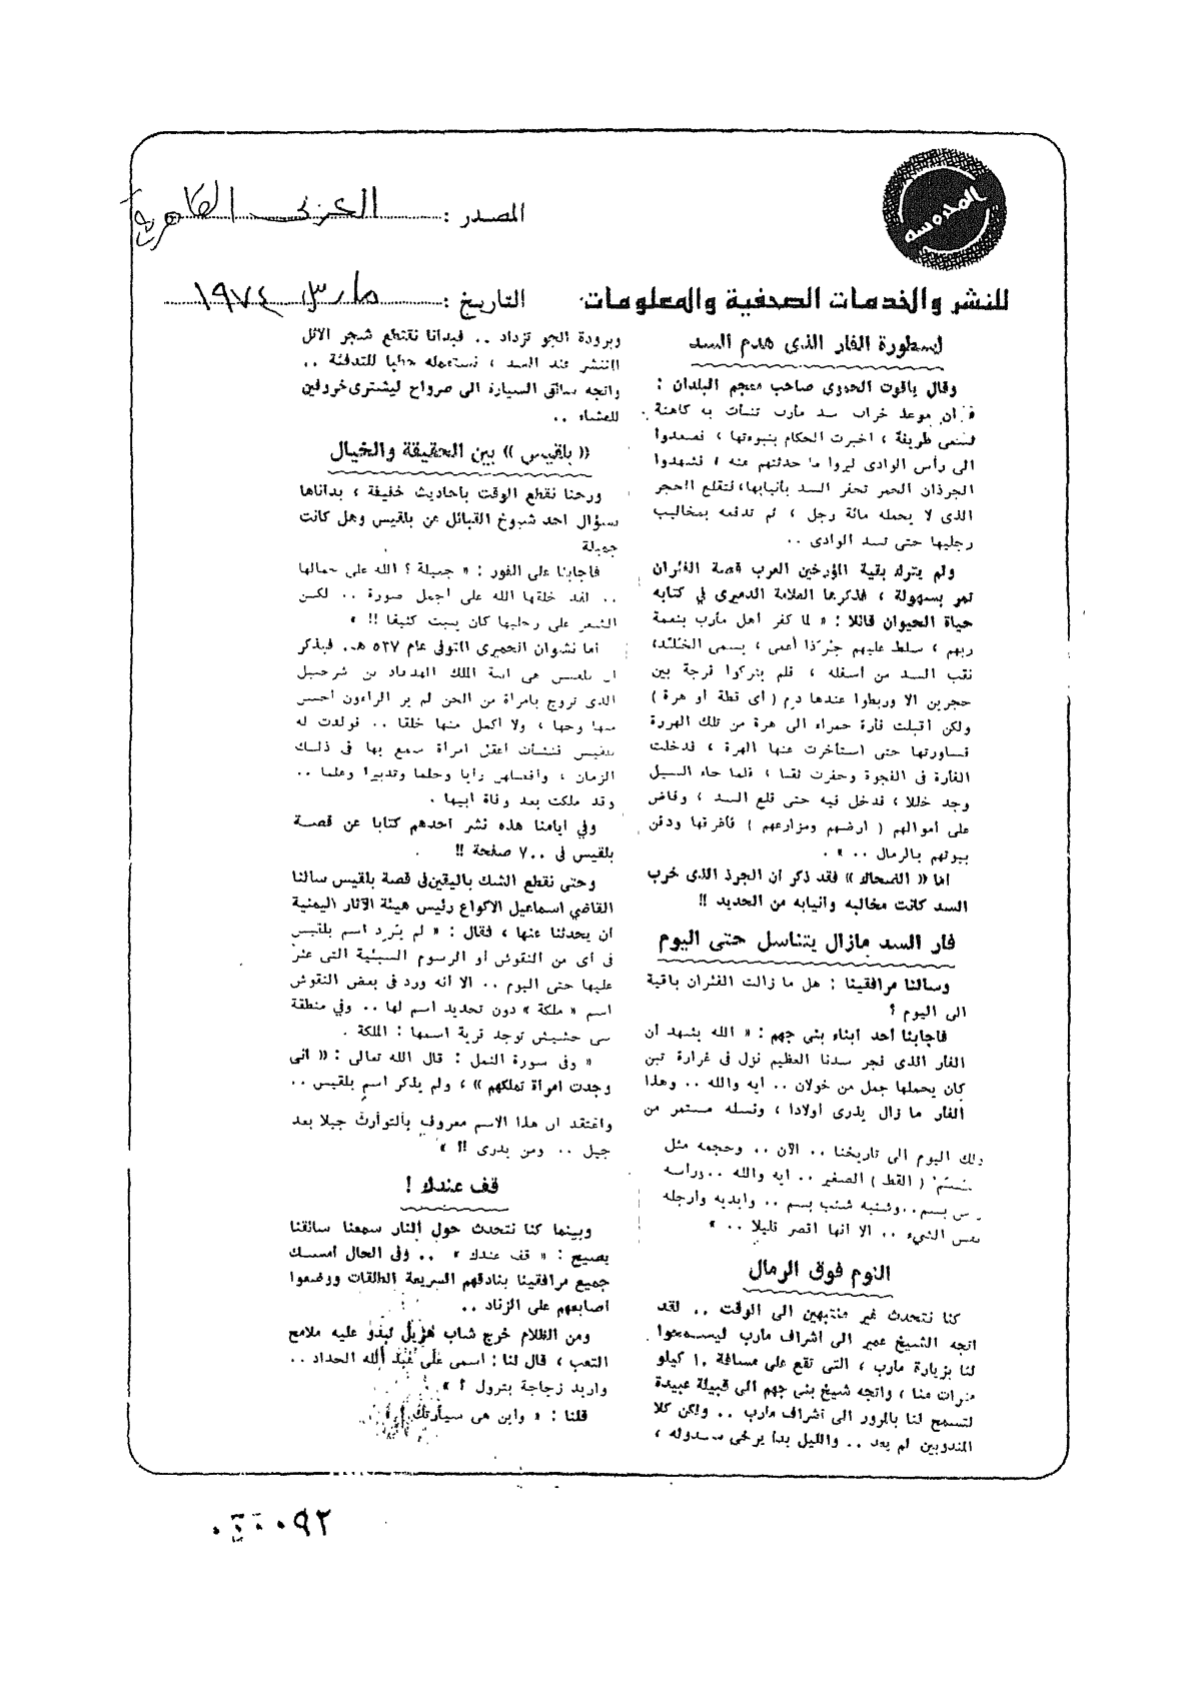 المدوسه
المصدر : العربى القاهرية
للنشر والخدمات الصحفية والمعلومات
التاريخ : مارس ١٩٧٤
اسطورة الفار الذى هدم السد
وقال ياقوت الحموى صاحب معجم البلدان :
ان موعد خراب سد مأرب تنبأت به كاهنة
تسمى طريفة ، اخبرت الحكام بنبوءتها ، فصعدوا
الى رأس الوادى ليروا ما حدثتهم عنه ، فشهدوا
الجرذان الحمر تحفر السد بأنيابها، فتقلع الحجر
الذى لا يحمله مائة رجل ، ثم تدفعه بمخاليب
رجليها حتى تسد الوادى ..
ولم يترك بقية المؤرخين العرب قصة الفئران
تمر بسهولة ، فذكرها العلامة الدميرى في كتابه
حياة الحيوان قائلا : « لما كفر اهل مأرب بنعمة
ربهم ، سلط عليهم جرذا أعمى ، يسمى الخلد،
نقب السد من أسفله ، فلم يتركوا فرجة بين
حجرين الا وربطوا عندها درم ( أى قطة او هرة )
ولكن أقبلت فارة حمراء الى هرة من تلك الهررة
فساورتها حتى استأخرت عنها الهرة ، فدخلت
الفأرة فى الفجوة وحفرت نقبا ، فلما جاء السيل
وجد خللا ، فدخل فيه حتى قلع السد ، وفاض
على أموالهم ( ارضهم ومزارعهم ) فأغرقها ودفن
بيوتهم بالرمال .. » .
اما « الضحاك » فقد ذكر ان الجرذ الذى خرب
السد كانت مخالبه وانيابه من الحديد !!
فار السد مازال يتناسل حتى اليوم
وسالنا مرافقينا : هل ما زالت الفئران باقية
الى اليوم ؟
فاجابنا أحد ابناء بنى جهم : « الله يشهد أن
الفار الذى فجر سدنا العظيم نزل فى غرارة تبن
كان يحملها جمل من خولان .. ايه والله .. وهذا
الفار ما زال يذرى أولادا ، ونسله مستمر من
ذلك اليوم الى تاريخنا .. الآن .. وحجمه مثل
( القط ) الصغير .. ايه والله .. وراسه
بسم .. وشنبه شنب بسم .. وايديه وارجله
نفس الشىء .. الا انها اقصر قليلا .. »
النوم فوق الرمال
كنا نتحدث غير منتبهين الى الوقت .. لقد
اتجه الشيخ عمير الى اشراف مارب ليسمحوا
لنا بزيارة مارب ، التى تقع على مسافة ١٠ كيلو
مترات منا ، واتجه شيخ بنى جهم الى قبيلة عبيدة
لتسمح لنا بالمرور الى أشراف مارب .. ولكن كلا
المندوبين لم يعد .. والليل بدا يرخى سدوله ،
وبرودة الجو تزداد .. فبدانا نقتطع شجر الاثل
المنتشر عند السد ، نستعمله حطبا للتدفئة ..
واتجه سائق السيارة الى صرواح ليشترى خروفين
للعشاء ..
« بلقيس » بين الحقيقة والخيال
ورحنا نقطع الوقت باحاديث خفيفة ، بداناها
بسؤال احد شيوخ القبائل عن بلقيس وهل كانت
جميلة
فاجابنا على الفور : « جميلة ؟ الله على جمالها
.. لقد خلقها الله على اجمل صورة .. لكن
الشعر على رجليها كان يسبت كثيفا !! »
أما نشوان الحميرى المتوفى عام ٥٣٧ هـ. فيذكر
ان بلقيس هى ابنة الملك الهدهاد بن شرحبيل
الذى تزوج بامراة من الجن لم ير الراءون احسن
منها وجها ، ولا اكمل منها خلقا .. فولدت له
بلقيس فنشأت اعقل امراة سمع بها فى ذلك
الزمان ، وافضلهن رايا وحلما وتدبيرا وعلما ..
وقد ملكت بعد وفاة ابيها .
وفي ايامنا هذه نشر احدهم كتابا عن قصة
بلقيس فى ٧٠٠ صفحة !!
وحتى نقطع الشك باليقين فى قصة بلقيس سالنا
القاضي اسماعيل الاكواع رئيس هيئة الآثار اليمنية
ان يحدثنا عنها ، فقال : « لم يرد اسم بلقيس
فى أى من النقوش أو الرسوم السبئية التى عثر
عليها حتى اليوم .. الا انه ورد فى بعض النقوش
اسم « ملكة » دون تحديد اسم لها .. وفي منطقة
بنى حشيش توجد قرية اسمها : الملكة .
« وفى سورة النمل : قال الله تعالى : « انى
وجدت امراة تملكهم » ، ولم يذكر اسم بلقيس ..
واعتقد ان هذا الاسم معروف بالتوارث جيلا بعد
جيل .. ومن يدرى !! »
قف عندك !
وبينما كنا نتحدث حول النار سمعنا سائقنا
يصيح : « قف عندك » .. وفى الحال أمسك
جميع مرافقينا بنادقهم السريعة الطلقات ووضعوا
اصابعهم على الزناد ..
ومن الظلام خرج شاب هزيل تبدو عليه ملامح
التعب ، قال لنا : اسمى على عبد الله الحداد ..
واريد زجاجة بترول ؟ »
قلنا : « واين هى سيارتك
٠٩٢